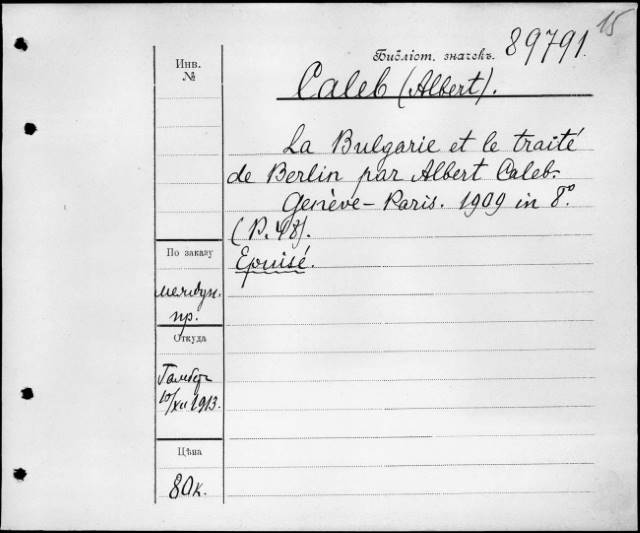 15
Библіот. значекъ. 89791.
Инв.
№
Caleb (Albert).
La Bulgarie et le traité
de Berlin par Albert Caleb.
Genève – Paris. 1909 in 8°.
(P. 48).
Epuisé.
По заказу
междун.
пр.
Откуда
10/XII 1913.
Цѣна
80 к.